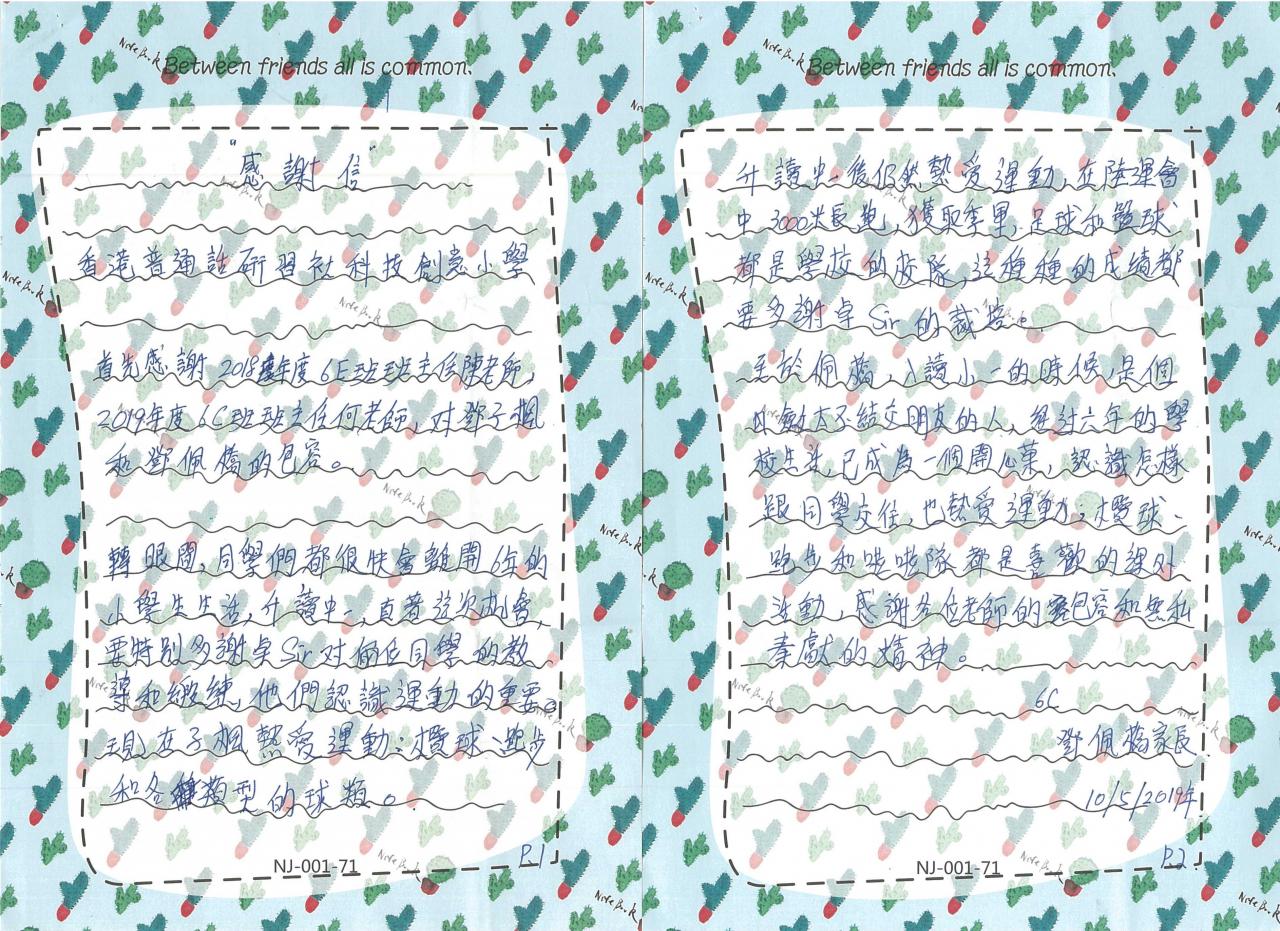 Between friends all is common.
"感謝信"
香港普通話研習社科技創意小學
首先感謝 2018年度 6E班班主任陳老師,
2019年度 6C班班主任何老師, 对鄧子楓
和鄧佩橋的包容。
轉眼間, 同學們都很快會離開 6年的
小學生生活, 升讀中一, 百昔这次机會,
要特别多謝卓 Sir 对倆位同學的教
導和緞練, 他們認識運動的重要。
現在子楓熱愛運動: 欖球、跑步
和各類型的球類。
NJ-001-71
P.1
Between friends all is common.
升讀中一後仍然熱愛運動, 在陸運會
中 3000米長跑, 獲取季軍, 足球和籃球
都是學校的校隊, 这種種的成績都
要多謝卓 Sir 的栽培。
至於佩橋, 入讀小一的時候, 是個
不結交朋友的人, 經过六年的學
校生活, 已成為一個開心菓, 認識怎樣
跟同學交往, 也熱愛運動: 欖球、
跑步和啦啦隊都是喜歡的課外
活動, 感謝各位老師的包容和無私
奉獻的精神。
6C
鄧佩橋家長
10/5/2019年
NJ-001-71
P.2